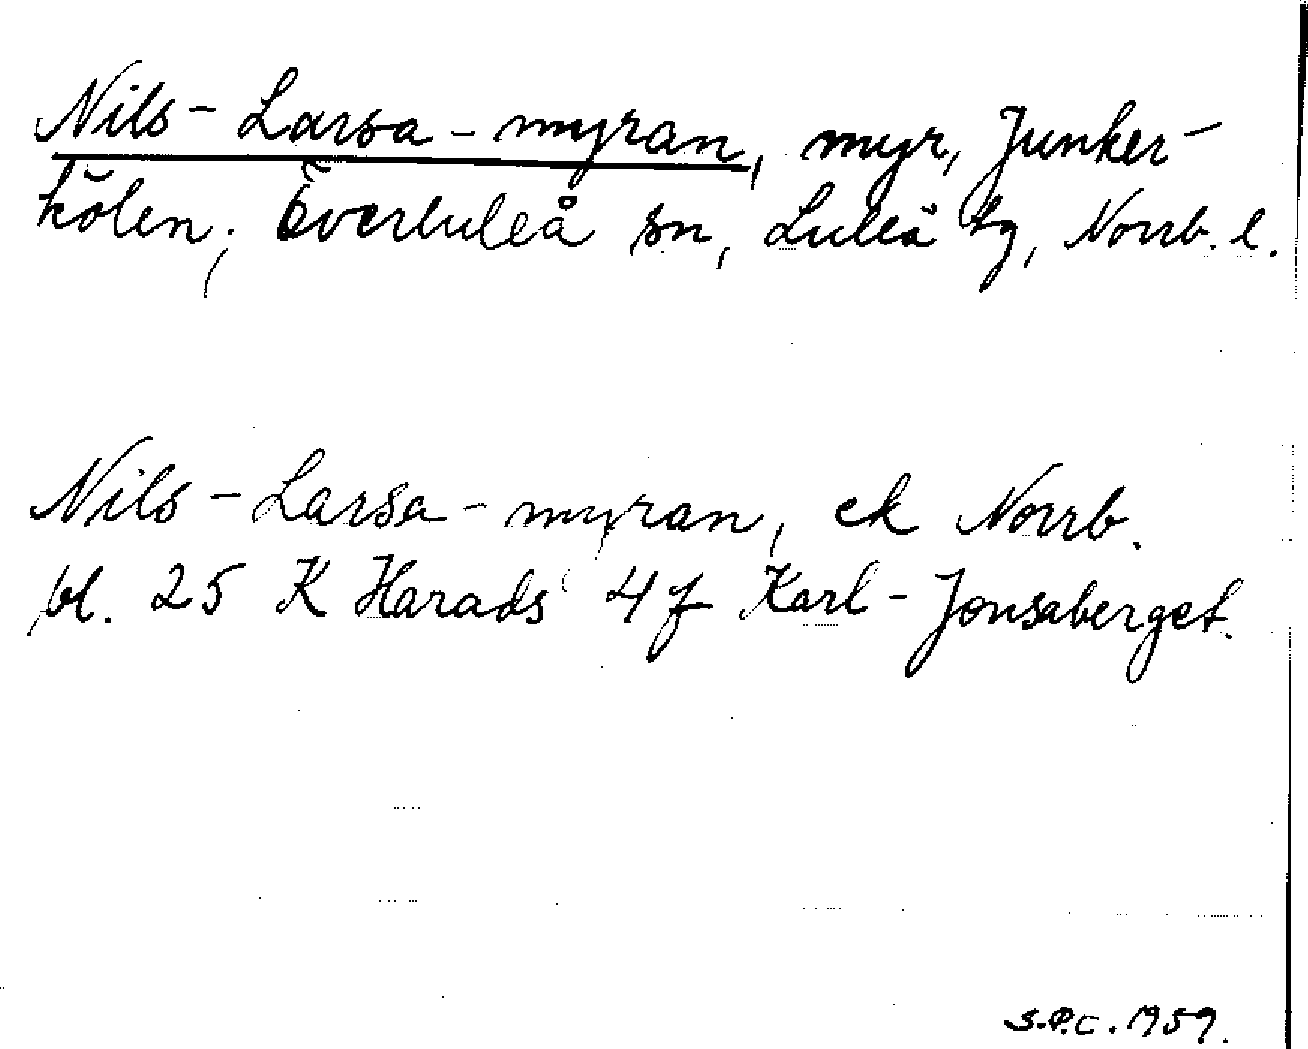 Nils-Larsa-myran, myr, Junker-
kölen, Överluleå sn, Luleå tg, Norrb. l.
Nils-Larsa-myran, ek Norrb.
bl. 25 K Harads 4f Karl-Jonsaberget.
S.P.C. 1959.